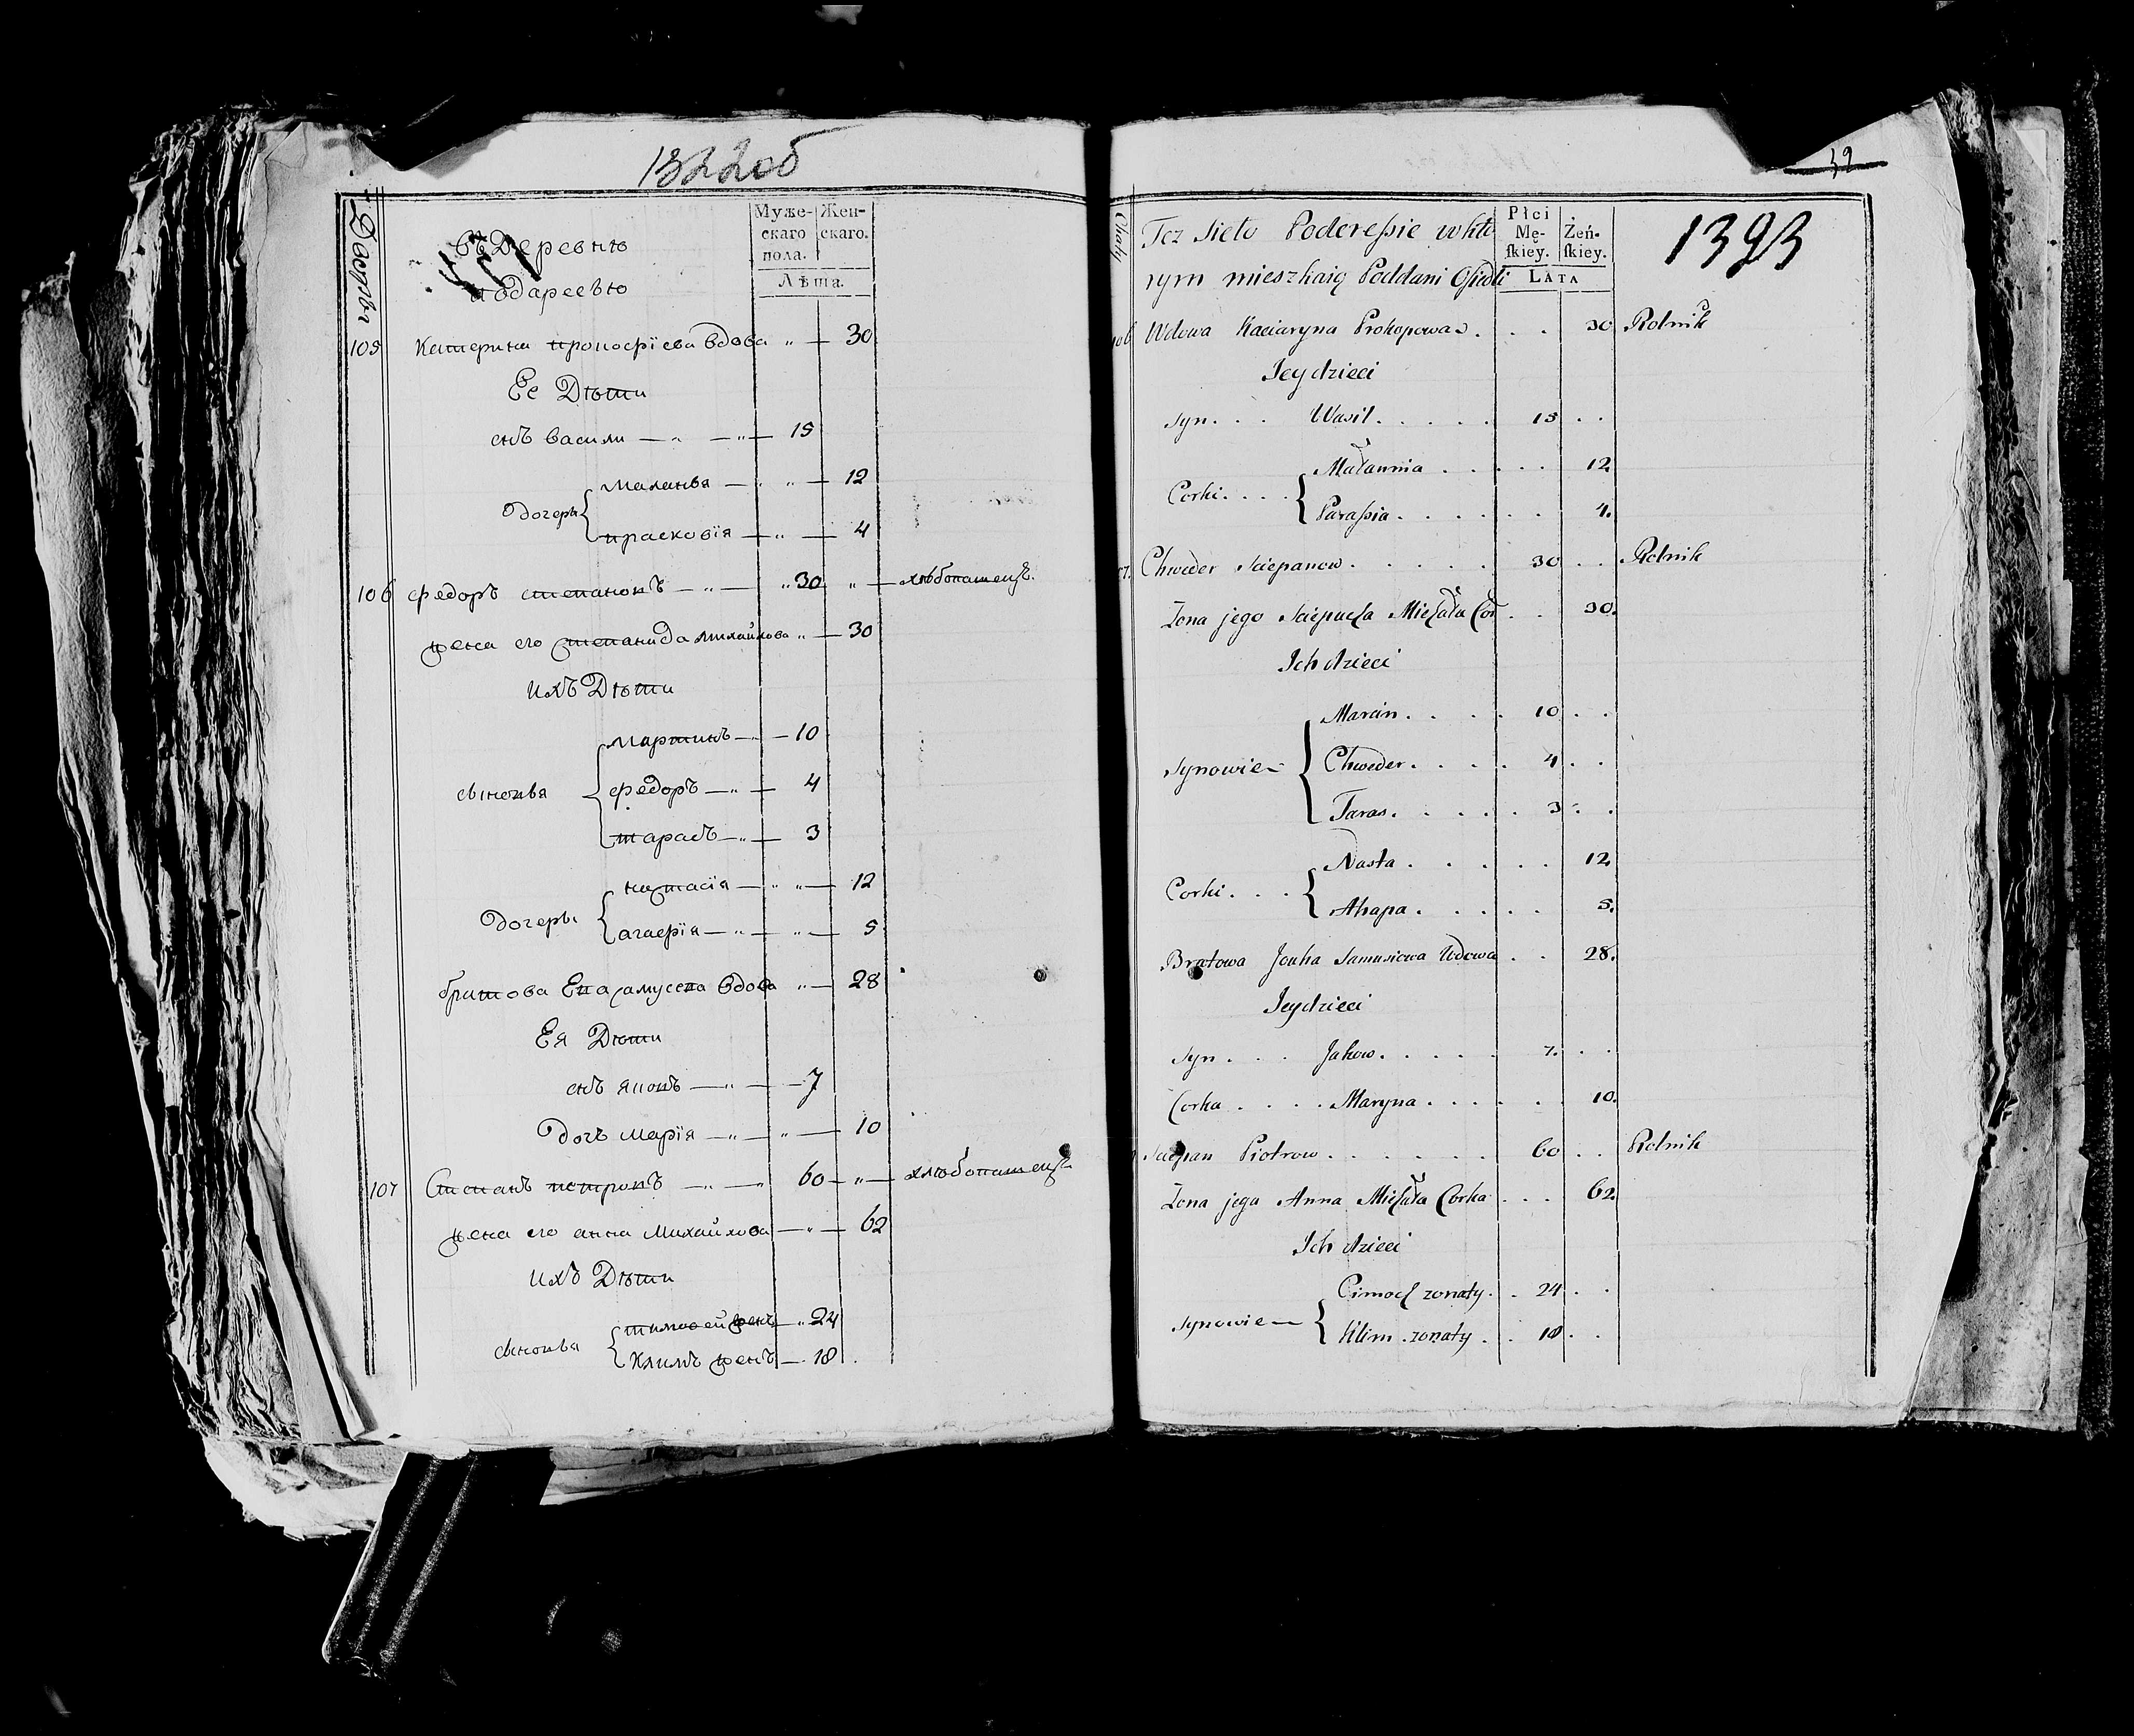 1322об
Дворъ
въ Деревню
подареевью
Муже-
скаго
пола.
Жен-
скаго.
Лѣта.
105 Катерина прокофіева вдова „ — 30
Ее Дѣти
снъ васили — „ — „ — 15
дочеры { маланья — „ — 12
прасковія — „ — 4
106 федоръ степановъ — „ — „ 30 „ — хлѣбопашецъ.
жена его степанида михайлова „ — 30
ихъ Дѣти
сыновья { мартинъ — 10
федоръ — „ — 4
тарасъ — „ — 3
дочеры { настасія — „ — 12
агафія — „ — „ — 5
братова самусева вдова „ — 28
Ея Дѣти
снъ яковъ — „ — 7
дочъ марія — „ — „ — 10
107 Степанъ петровъ — „ — „ 60 — „ — хлѣбопашецъ
жена его анна михайлова — „ — 62
ихъ Дѣти
сыновья { тимофей жен. — „ 24
Климъ женъ — 18
32
Chaty
Tez Sieło Podereſsie w kto
rym mieszkaią Poddani Osiedli
Płci
Mę-
ſkiey.
Żeń-
ſkiey.
LATA
1323
106 Wdowa Kaciaryna Prokopowa . . . 30 Rolnik
Jey dzieci
Syn . . . Wasil . . . . . 15 . .
Corki . . . . { Małannia . . . . . 12
Paraſsia . . . . . . . 4.
Chweder Sciepanow . . . . . 30 . . Rolnik
Zona jego Sciepucha Michała Cor . . 30.
Ich dzieci
Synowie — { Marcin . . . . 10 . .
Chweder . . . . 4 . .
Taras . . . . . 3 . .
Corki . . . { Nasta . . . . . . 12
Ahapa . . . . . 5.
Bratowa Jouha Samusiowa Wdowa . . 28.
Jey dzieci
Syn . . . Jakow . . . . . 7. . .
Corka . . . . Maryna . . . . . . 10.
Sciepan Piotrow . . . . . . 60 . . Rolnik
Zona jego Anna Michała Corka . . . 62.
Ich dzieci
Synowie — { Cimoch zonaty . . 24 . .
Klim zonaty . . 18 . .